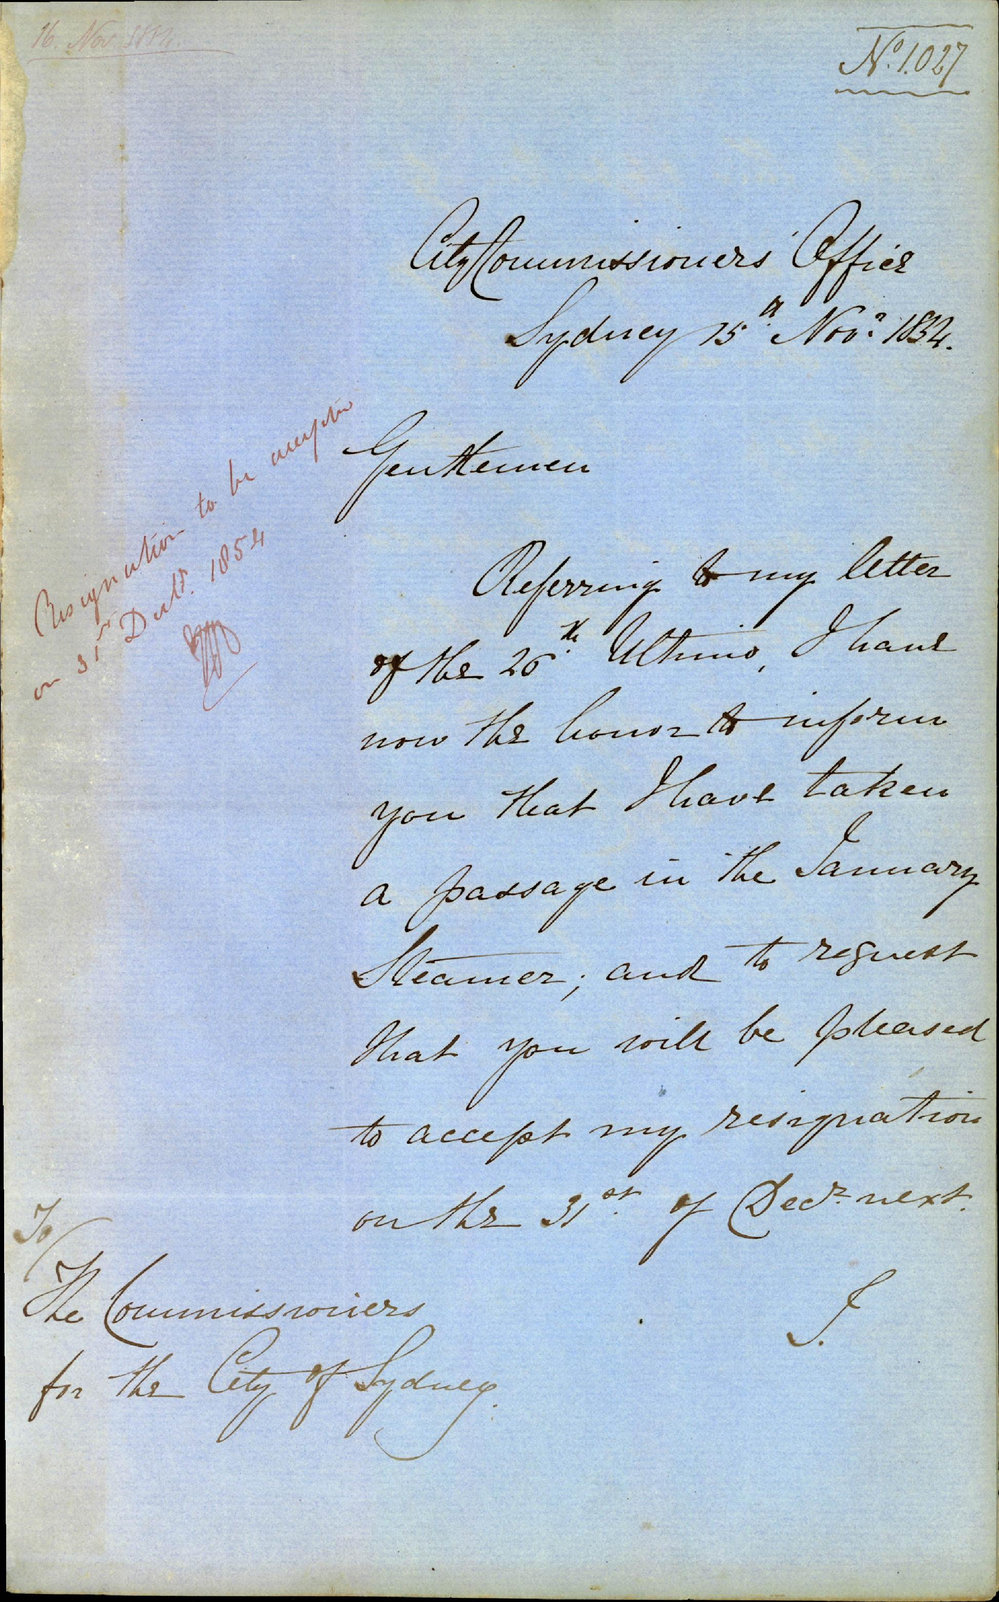 16 Nov 1854
No. 1.027
City Commissioners' Office
Sydney 15th Novr. 1854.
Gentlemen
Resignation to be accepted
on 31st Decr. 1854
Referring to my letter
of the 26th Ultimo, I have
now the honor to inform
you that I have taken
a passage in the January
Steamer; and to request
that you will be pleased
to accept my resignation
on the 31st. of Decr. next.
I.
To/
The Commissioners
for the City of Sydney.